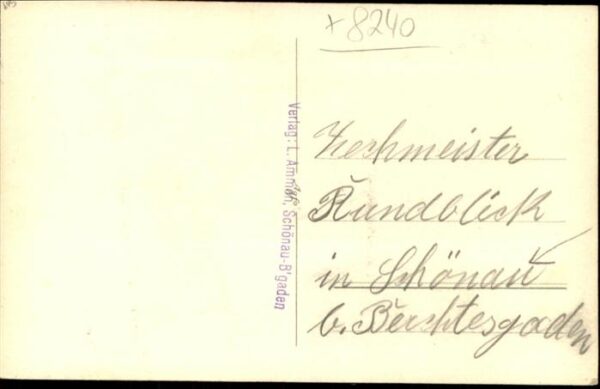 +8240
Verlag: L. Ammon, Schönau-B'gaden
Zechmeister
Rundblick
in Schönau
b. Berchtesgaden